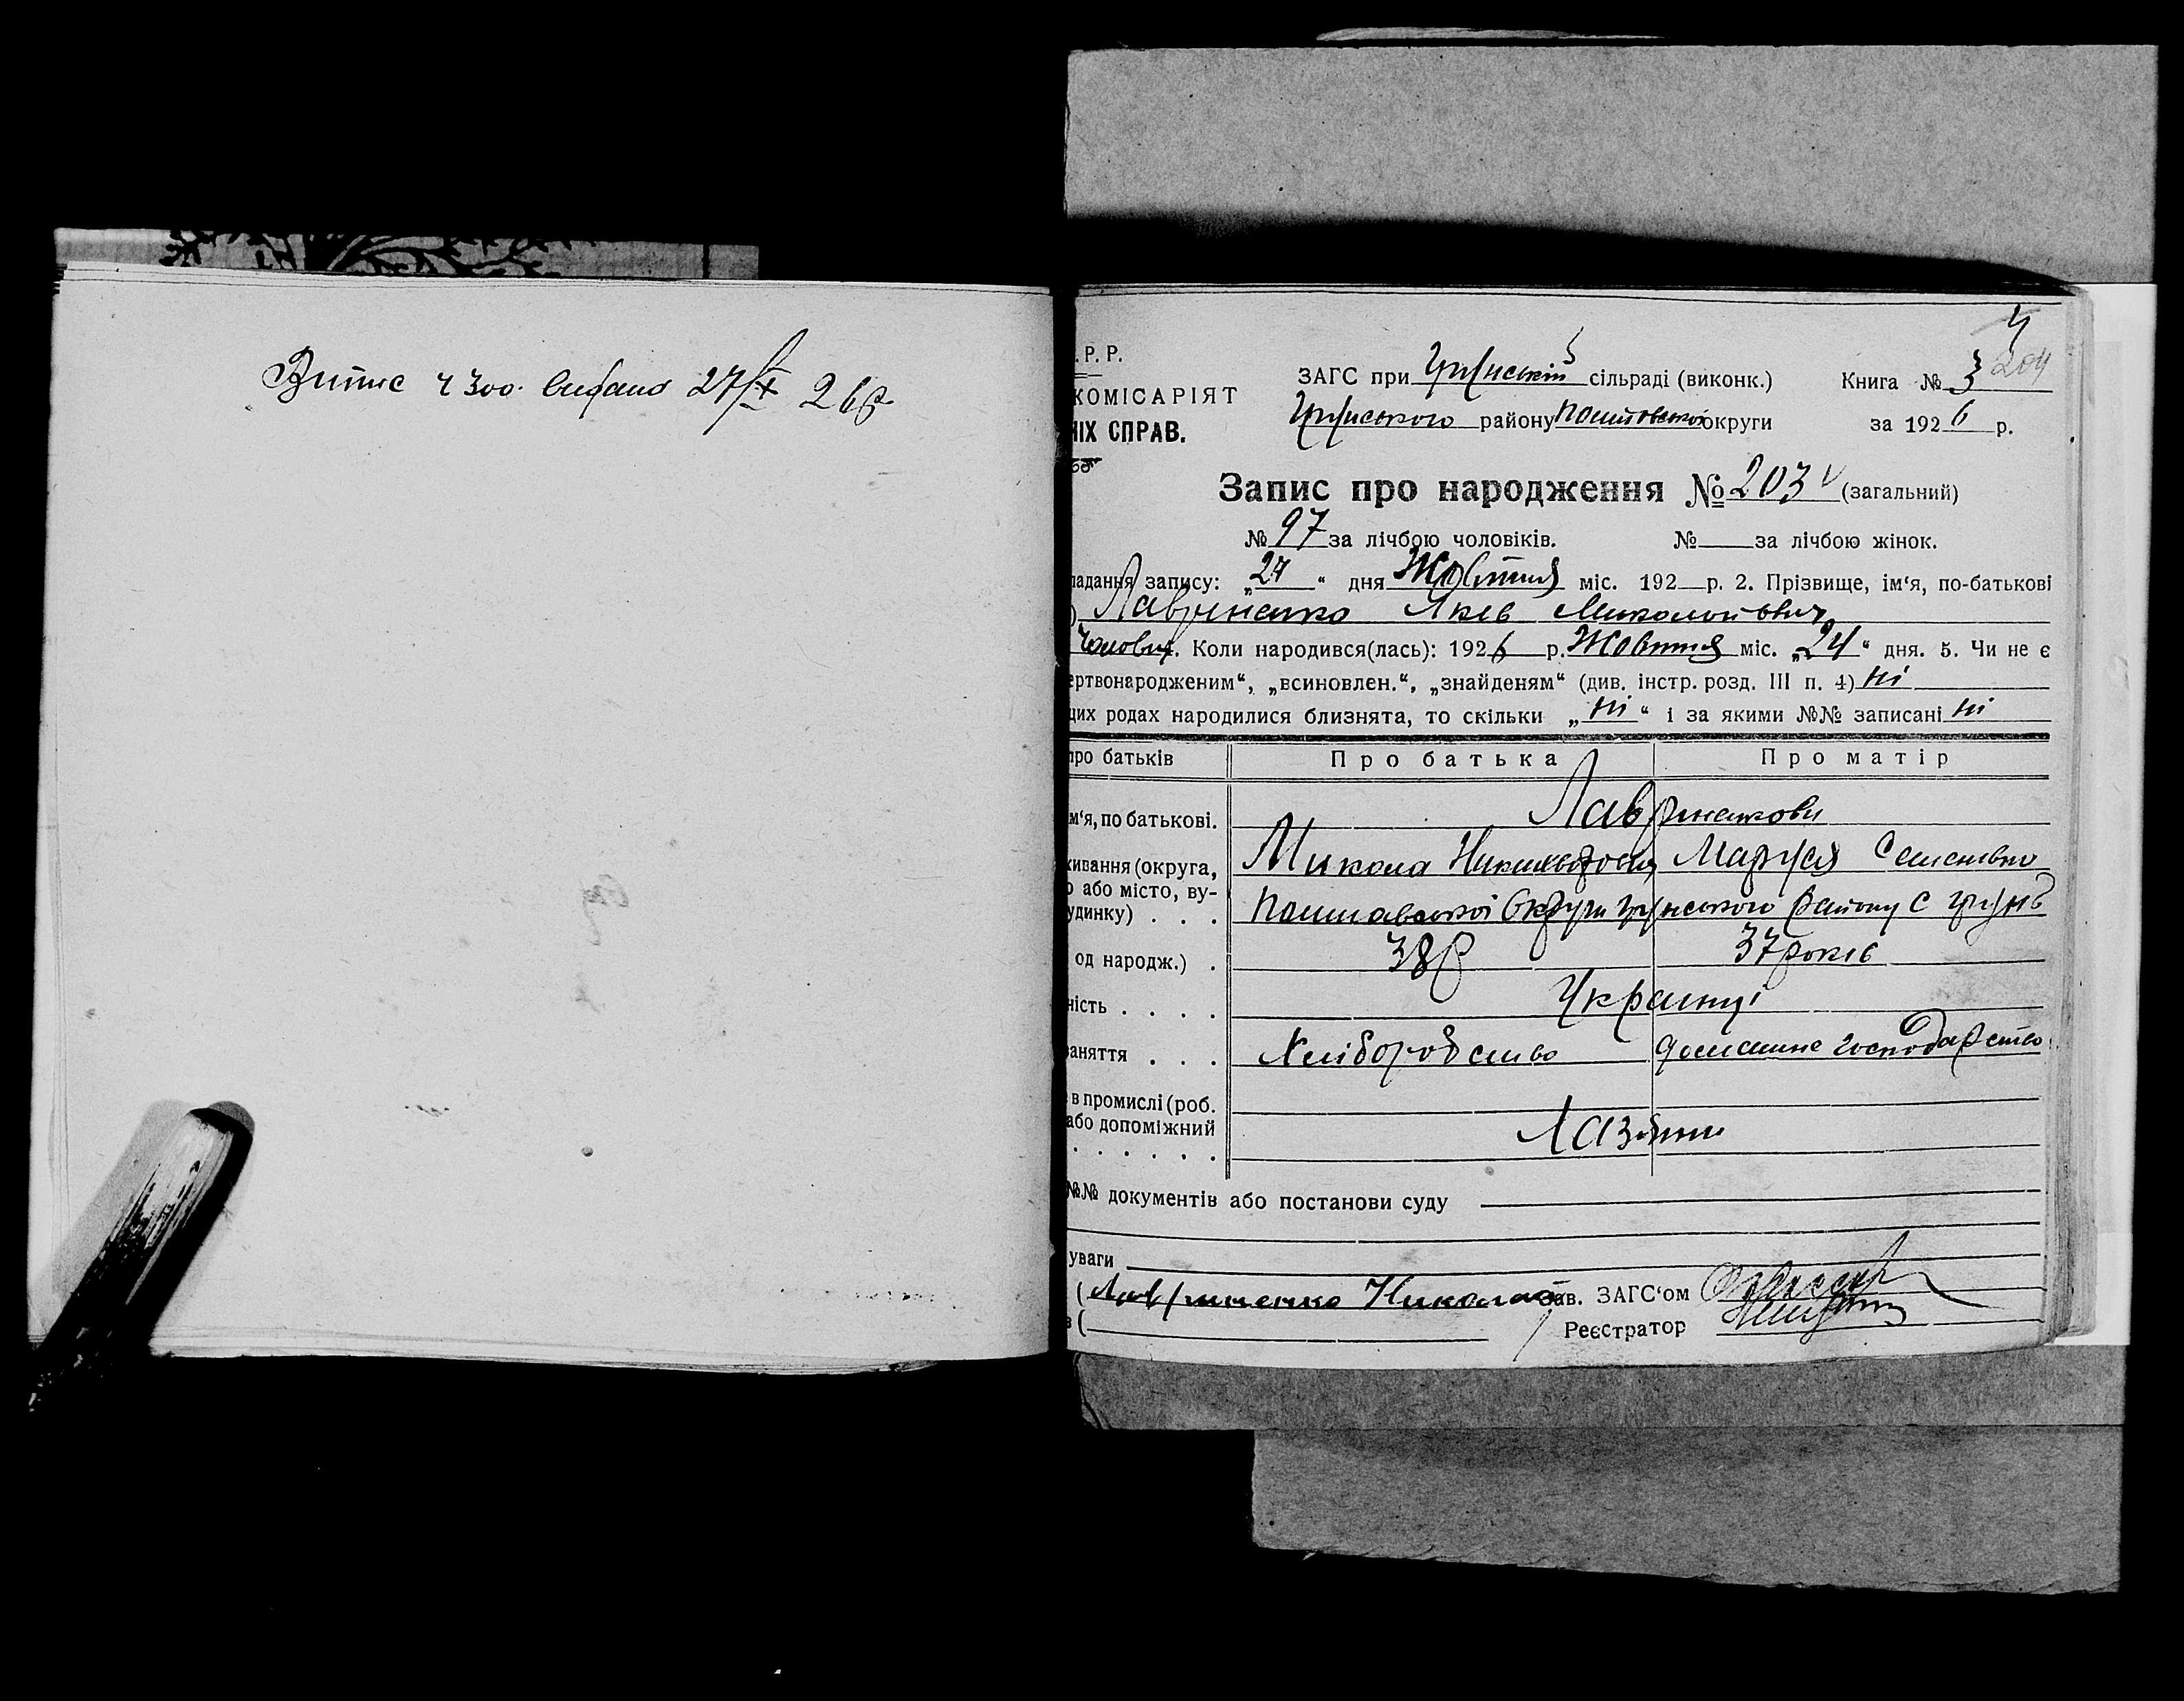 Витис ч 300. видано 27/X 26р.
. Р. Р.
КОМІСАРІЯТ
НІХ СПРАВ.
ЗАГС при Грунській сільраді (виконк.) Книга № 3 204
Грунського району Полтавської округи за 1926 р.
Запис про народження № 203 (загальний)
№ 97 за лічбою чоловіків. № за лічбою жінок.
ладання запису: „27“ дня Жовтня міс. 192 р. 2. Прізвище, ім‘я, по-батькові
) Лавриненко Яків Миколайович
Чоловіч. Коли народився(лась): 1926 р. Жовтня міс. „24“ дня. 5. Чи не є
ертвонародженим“, „всиновлен.“, „знайденям“ (див. інстр. розд. III п. 4) ні
цих родах народилися близнята, то скільки „ні“ і за якими №№ записані ні
про батьків Про батька Про матір
м‘я, по батькові. Лавриненкови
Микола Маруся Семенівна
живання (округа,
о або місто, ву-
удинку) . . . Полтавської Округи Грунського району С Грунь
од народж.) . 38р 37 років
ність . . . . Українці
заняття . . . Хліборобство домашнє господарство
в промислі (роб.
або допоміжний
. . . . . . Хазяїни
№№ документів або постанови суду
уваги
( Лавриненко Николай Зав. ЗАГС‘ом
в ( Реєстратор